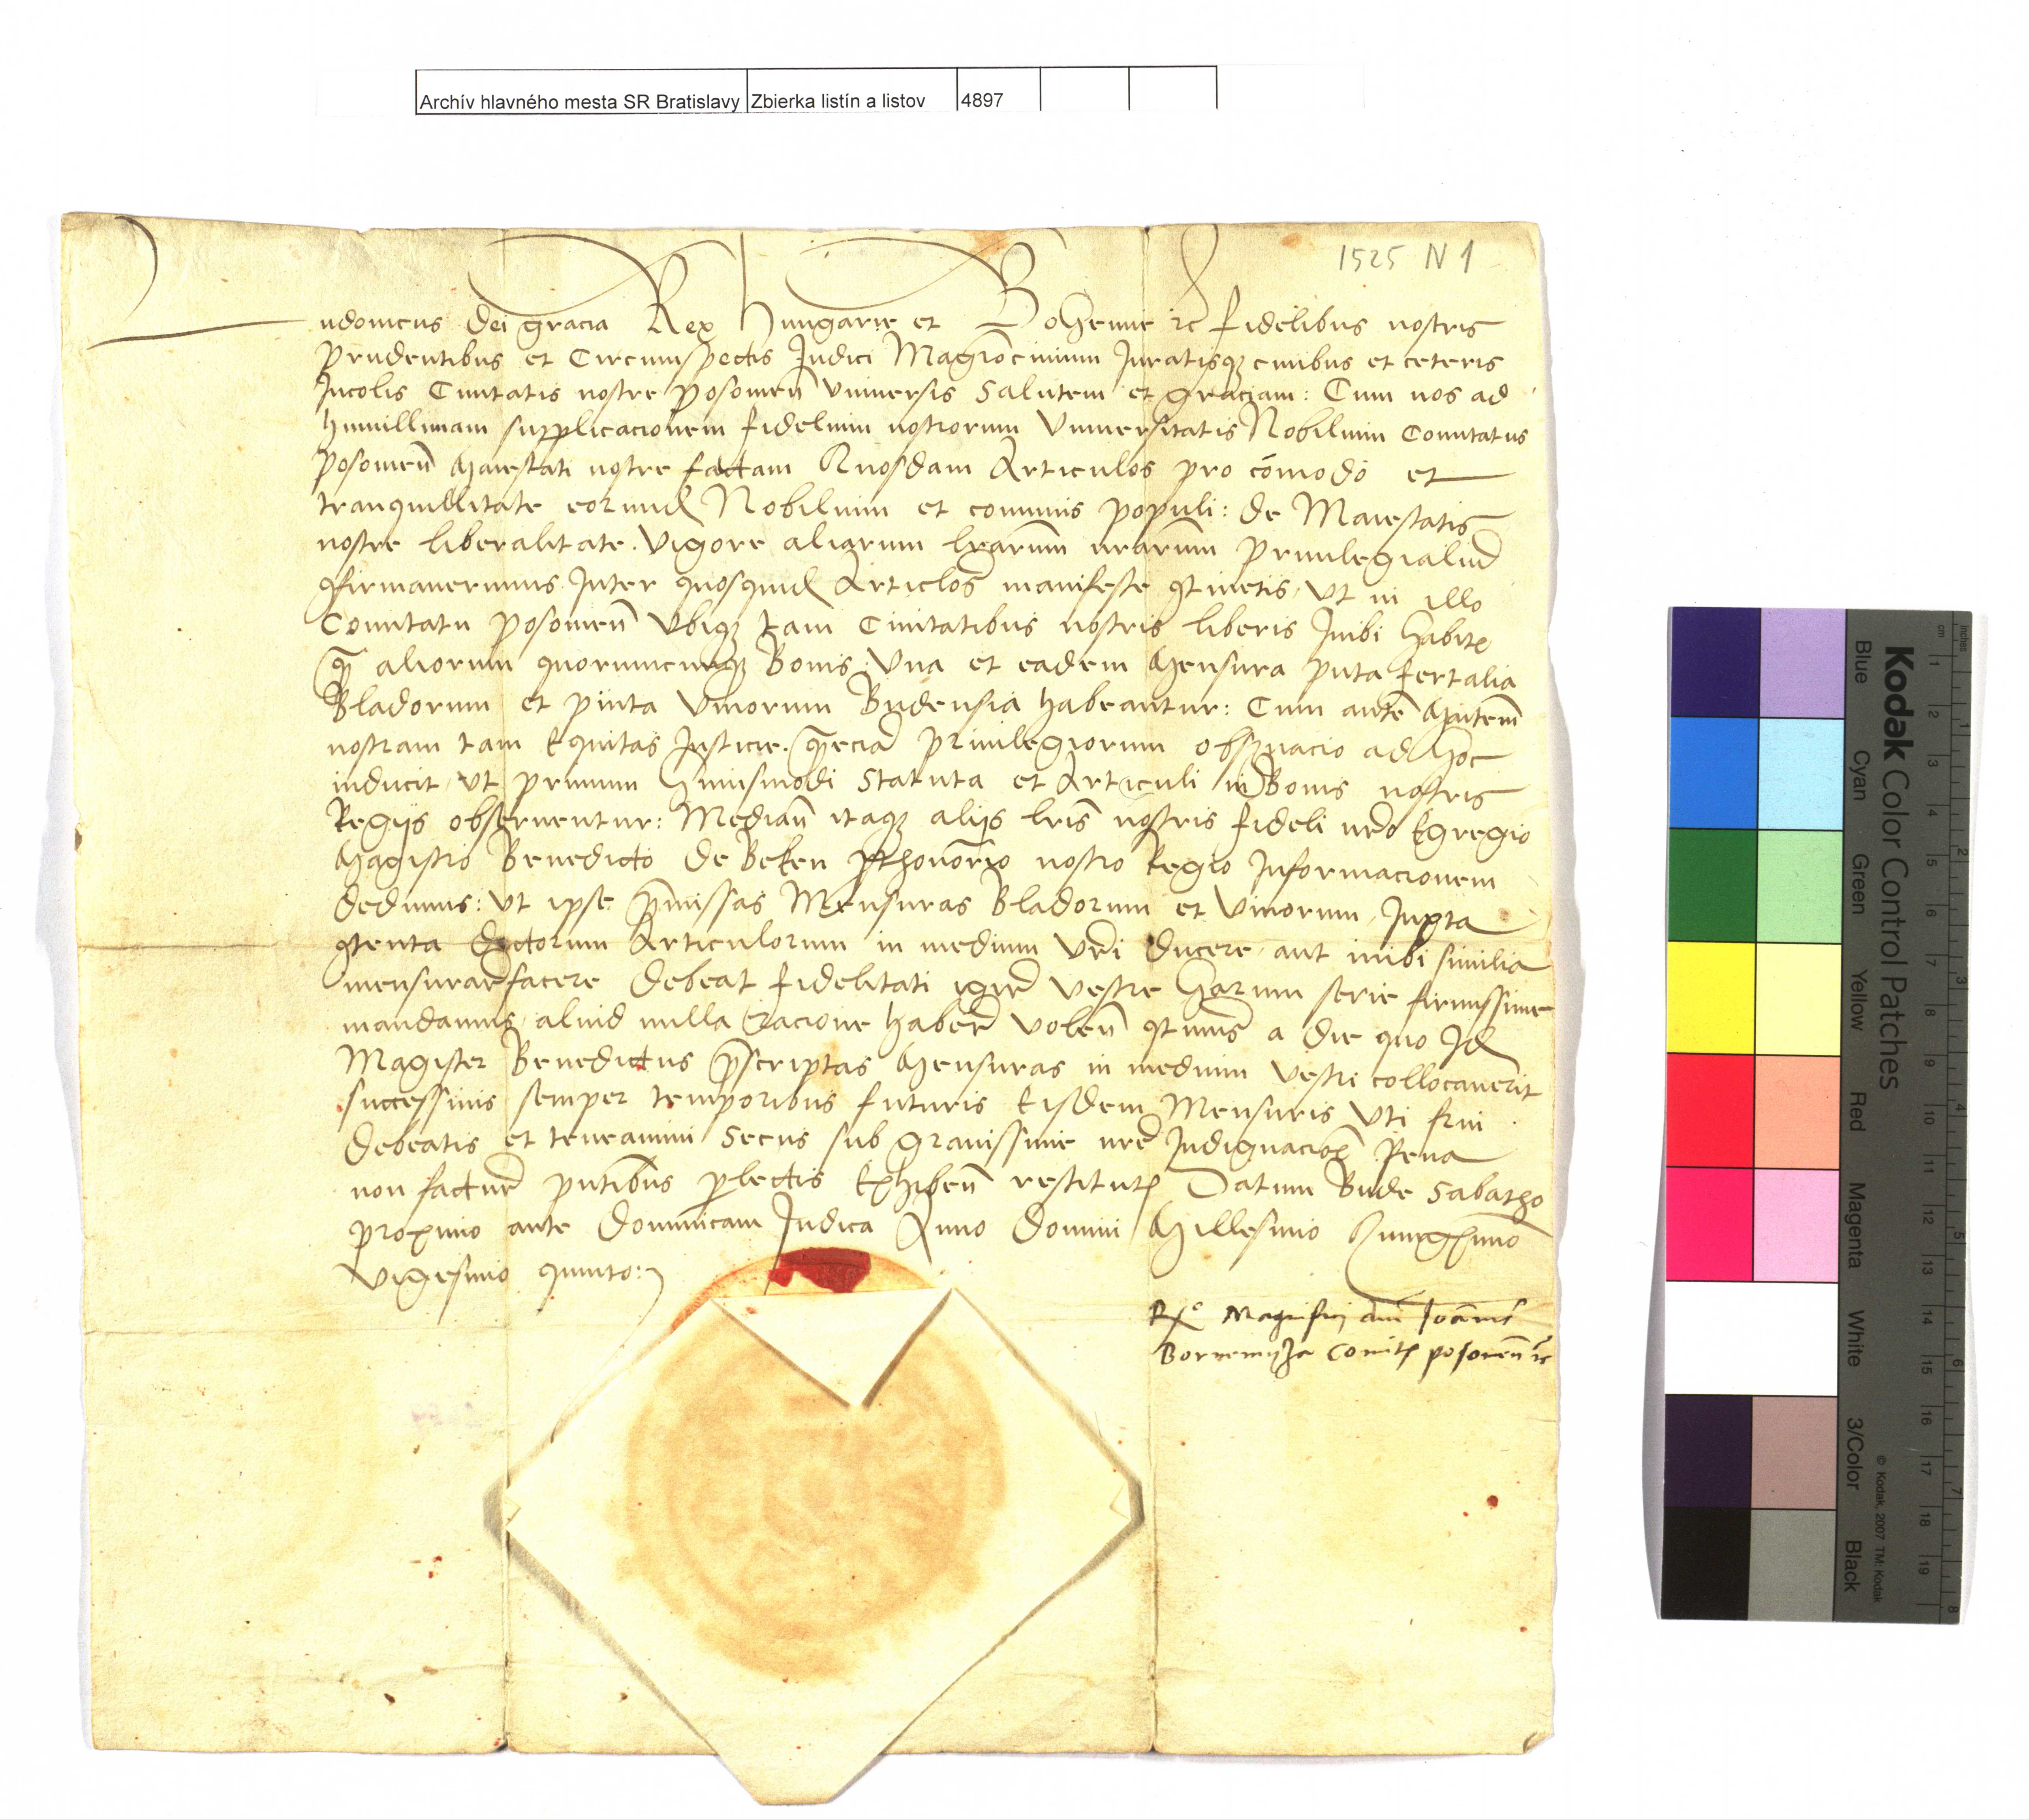 Archív hlavného mesta SR Bratislavy Zbierka listín a listov 4897
1525 N 1
Ludouicus dei gracia Rex Hungarie et Bohemie etc fidelibus nostris
prudentibus et Circumspectis Judici Magrōciuium Juratisqz ciuibus et ceteris
Incolis Ciuitatis nostre posonien̄ vniuersis Salutem et graciam: Cum nos ad
humillimam supplicacionem fidelium nostrorum Vniuersitatis Nobilium Comitatus
posonien̄ Maiestati nostre factam Quosdam Articulos pro cōmodo et
tranquillitate eorund Nobilium et communis populi: de Maiestatis
nostre liberalitate. Vigore aliarum lr̄arum nr̄arum priuilegialiu
9firmauerimus Inter quosquid Articlos manifeste 9tinetis, Vt in illo
Comitatu posonien̄ Vbiqz tam Ciuitatibus nostris liberis Inibi habitis
q̄ aliorum quorumcunqz Bonis: Vna et eadem Mensura puta fertalia
Bladorum et pinta Vinorum Budensia habeantur: Cum autē Mentem
nostram tam Equitas Justicie. q̄ecia priuilegiorum obseruacio ad hoc
inducit, Vt primum huiusmodi Statuta et Articuli in Bonis nostris
Regijs obseruentur: Median̄ itaqz alijs lr̄is nostris fideli nr̄o Egregio
Magistro Benedicto de Beken p̄thonōrio nostro Regio Informacionem
dedimus: Vt ipse p̄missas Mensuras Bladorum et Vinorum, Juxta
9tenta dictorum Articulorum in medium vr̄i ducere, aut inibi similia
mensurare facere debeat fidelitati igitur vestre harum serie firmissime
mandamus, aliud nulla racione habere volen̄ 9tinus a die quo Id
Magister Benedictus p̄scriptas Mensuras in medium vestri collocauerit
successiuis semper temporibus futuris Eisdem Mensuris Vti frui
debeatis et teneamini Secus sub grauissime nr̄e Indignacionis Pena
non factur p̄ntibus plectis Exhiben̄ restitutis Datum Bude Sabatho
proximo ante dominicam Judica Anno domini Millesimo Quingesimo
Vigesimo quinto:
Rx° Magnifici dn̄i Joānis
Bornemyza Comitis posonien̄ etc
Kodak Color Control Patches
Blue Cyan Green Yellow Red Magenta White 3/Color Black
© Kodak, 2007 TM: Kodak
inches 1 2 3 4 5 6 7 8
cm 1 2 3 4 5 6 7 8 9 10 11 12 13 14 15 16 17 18 19